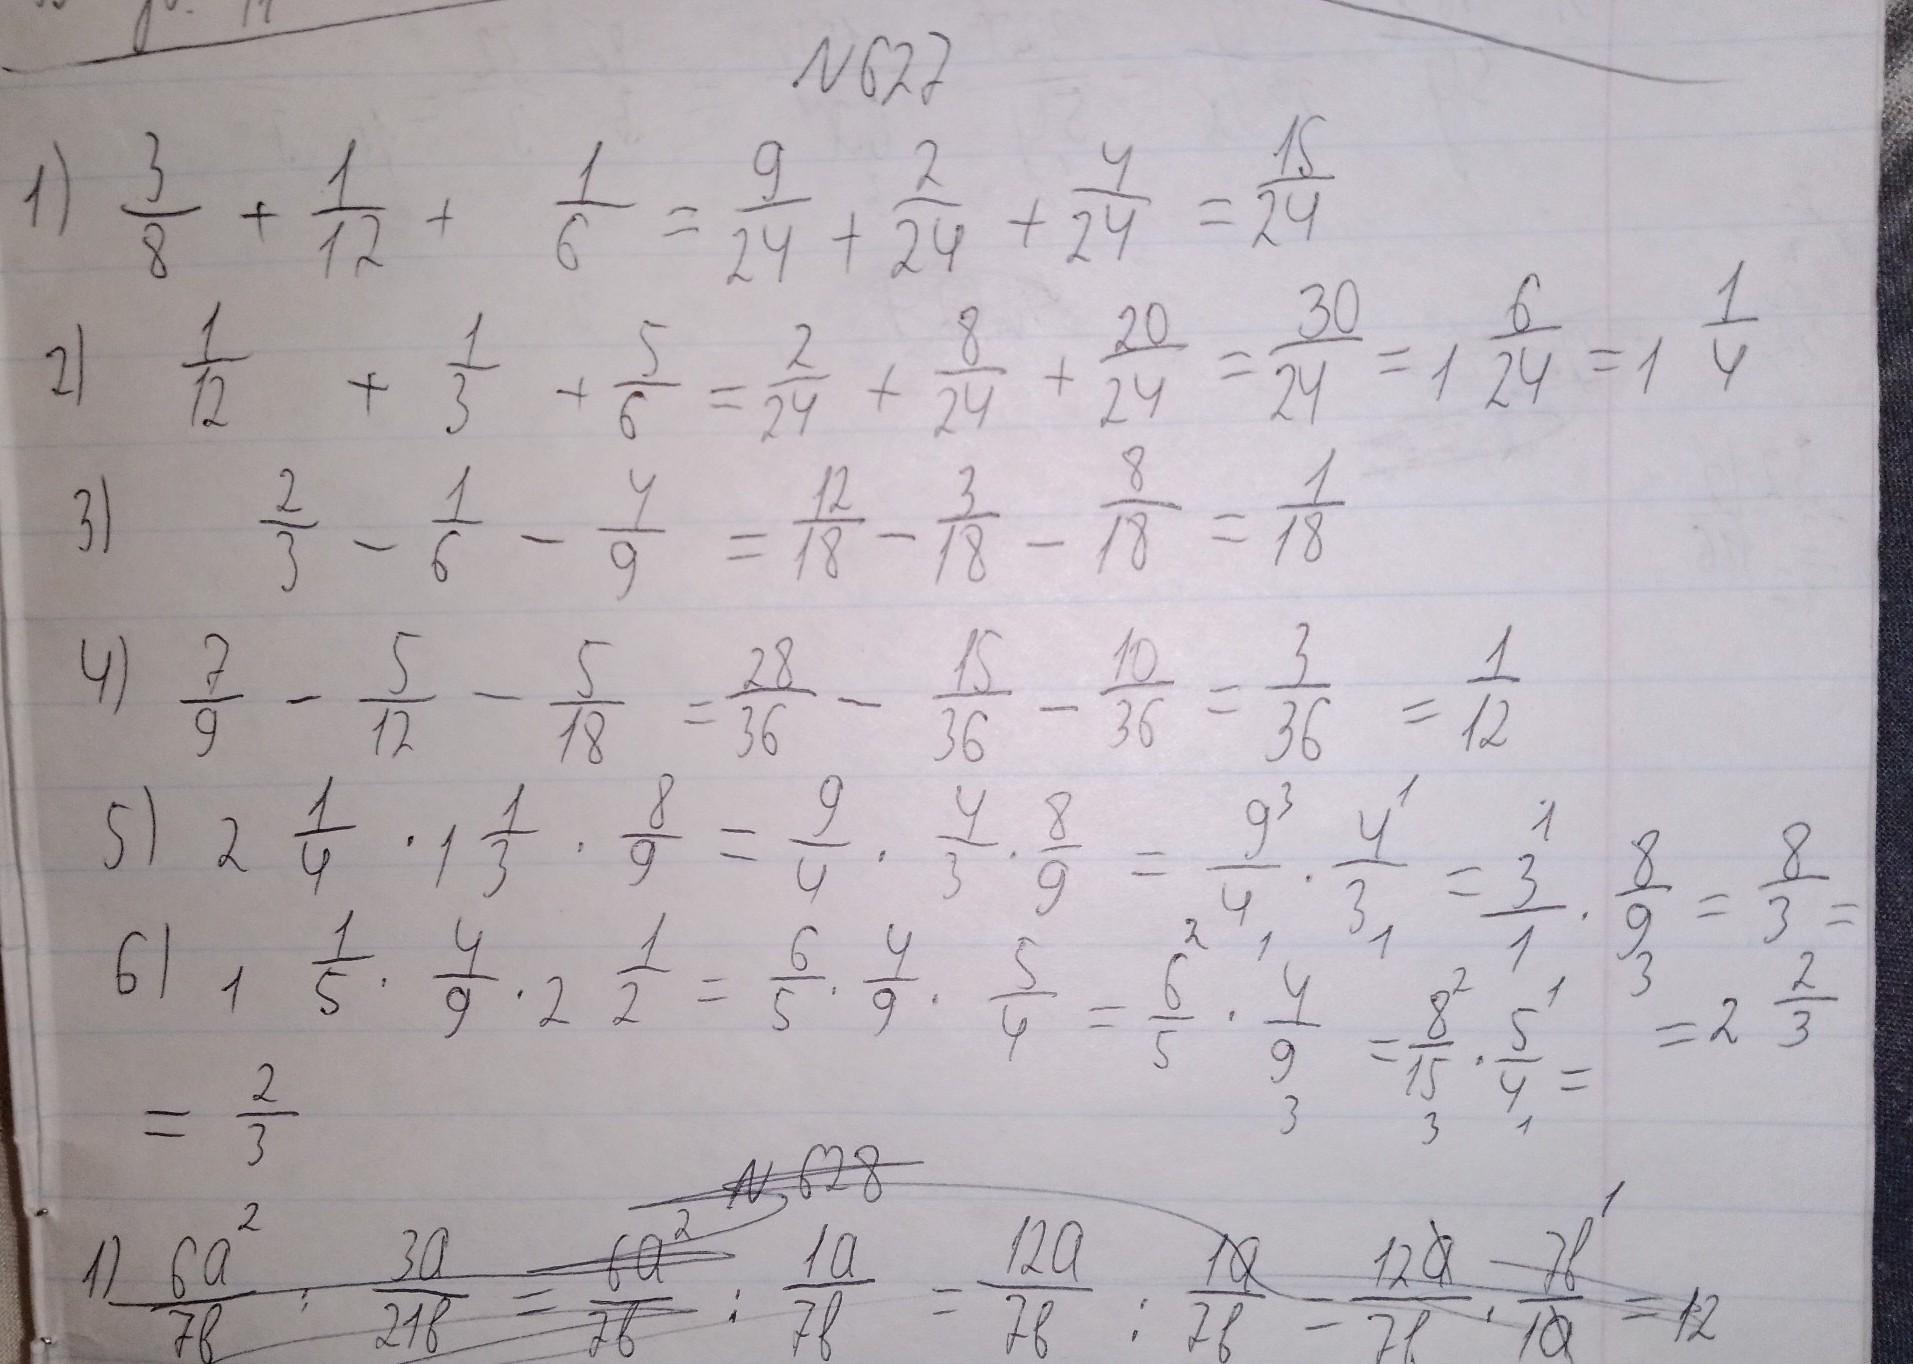 N627
1) 3/8 + 1/12 + 1/6 = 9/24 + 2/24 + 4/24 = 15/24
2) 1/12 + 1/3 + 5/6 = 2/24 + 8/24 + 20/24 = 30/24 = 1 6/24 = 1 1/4
3) 2/3 - 1/6 - 4/9 = 12/18 - 3/18 - 8/18 = 1/18
4) 7/9 - 5/12 - 5/18 = 28/36 - 15/36 - 10/36 = 3/36 = 1/12
5) 2 1/4 · 1 1/3 · 8/9 = 9/4 · 4/3 · 8/9 = 9³/4₁ · 4¹/3₁ = 3¹/1 · 8/9₃ = 8/3 =
= 2 2/3
6) 1 1/5 · 4/9 · 2 1/2 = 6/5 · 4/9 · 5/4 = 6²/5 · 4/9₃ = 8²/15₃ · 5¹/4₁ =
= 2/3
N 628
1) 6a²/7b : 3a/21b = 6a²/7b : 1a/7b = 12a/7b : 1a/7b = 12a/7b · 7b¹/1a = 12